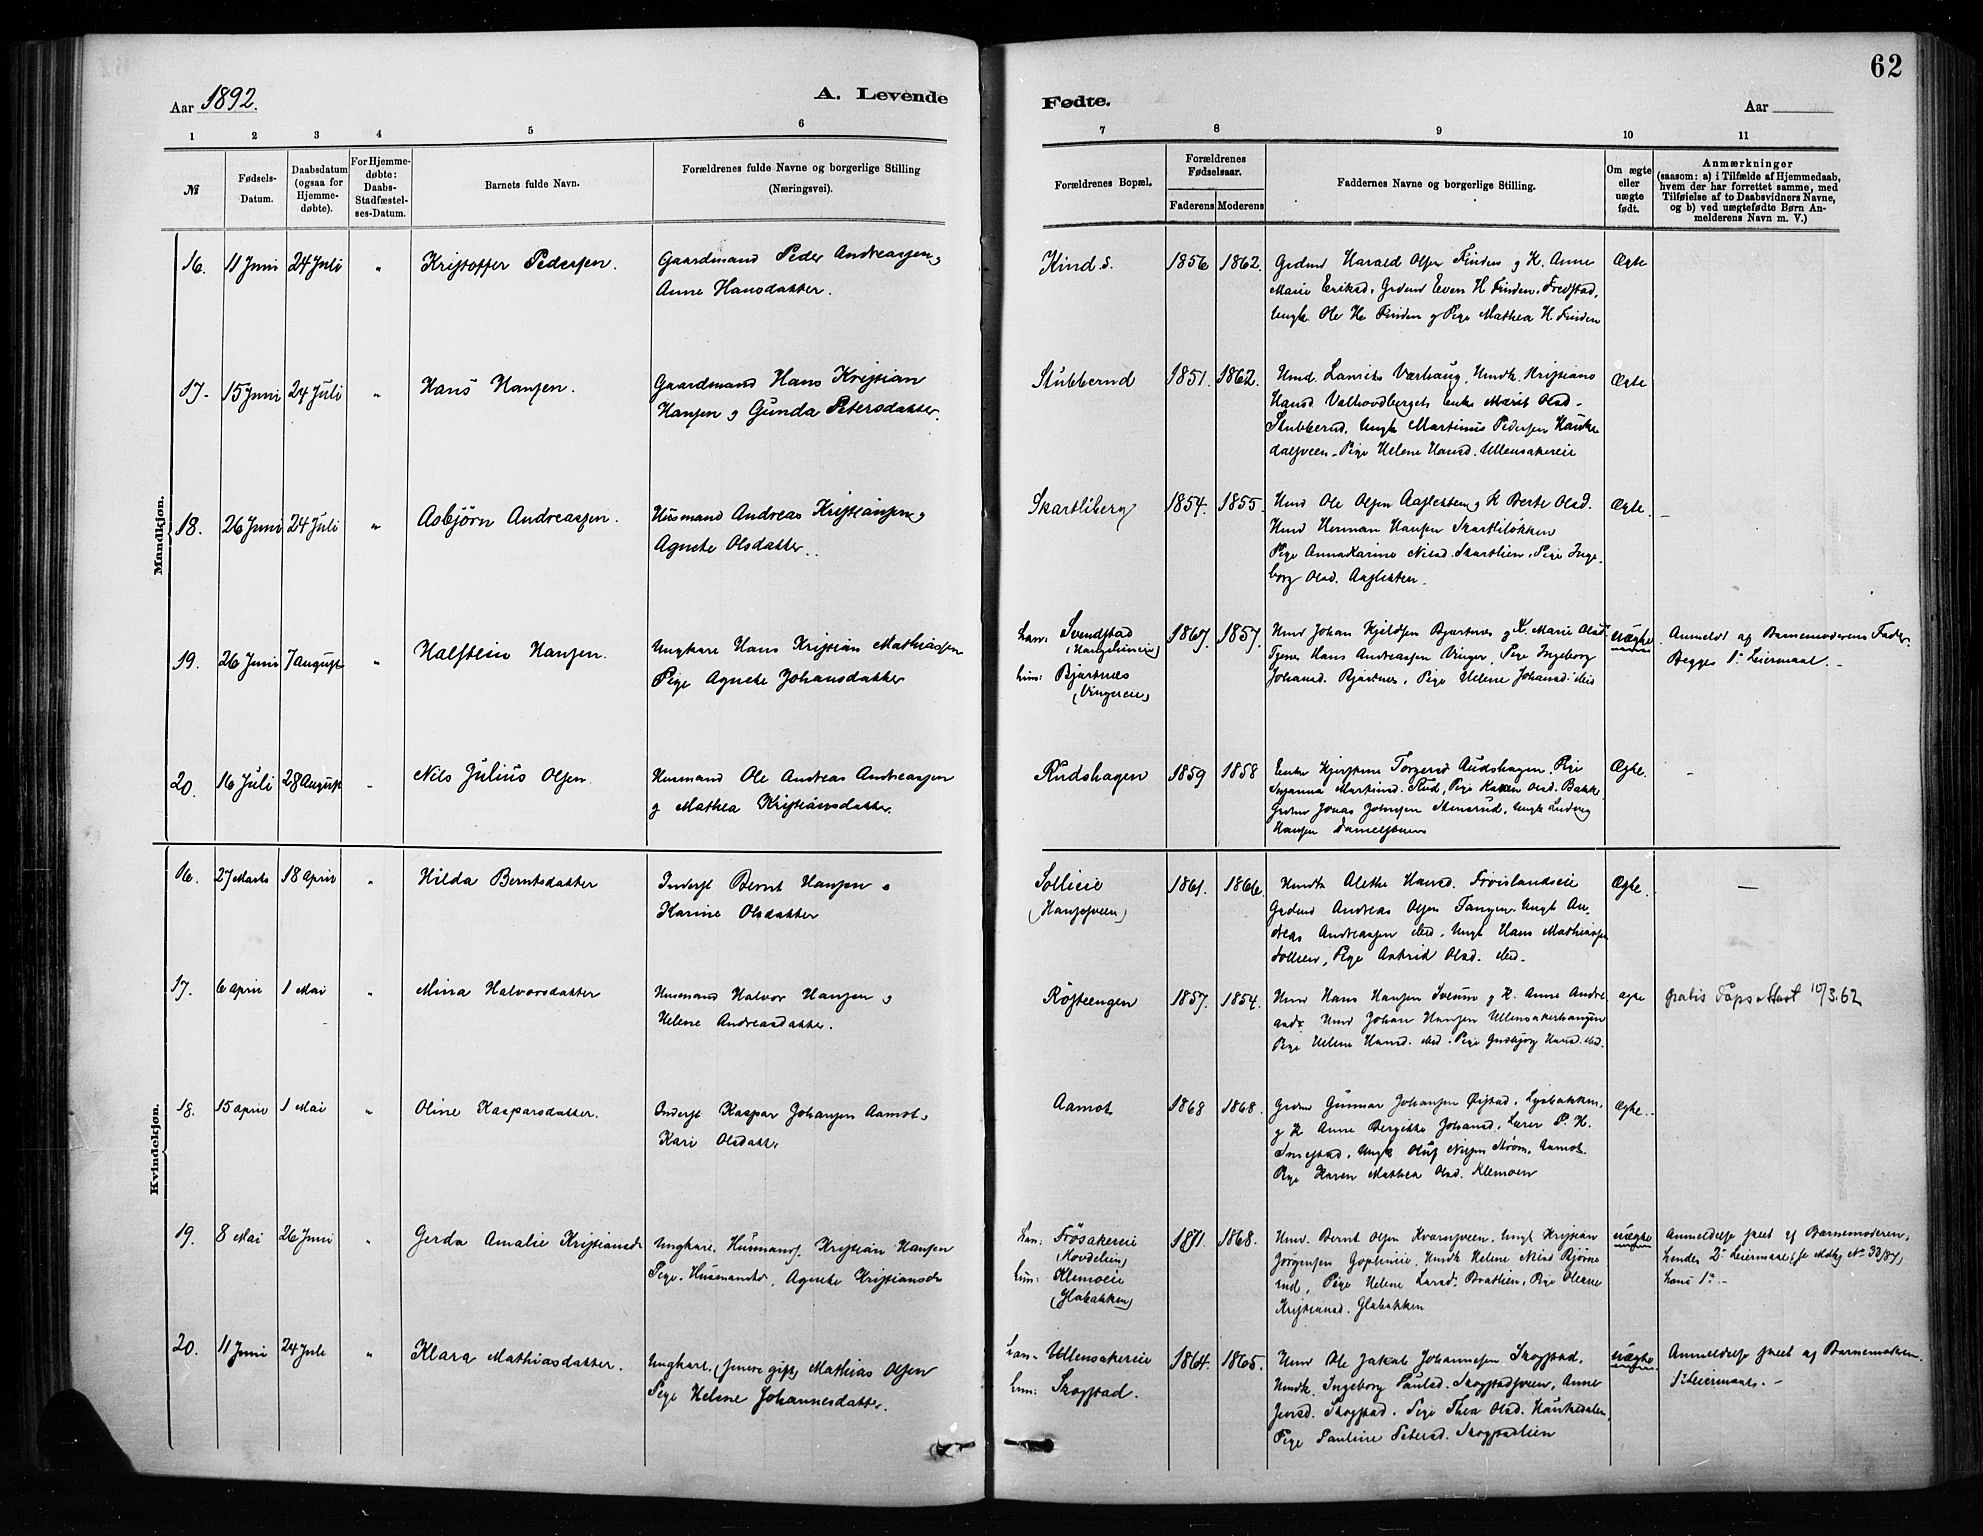 62
Aar 1892.
A. Levende
Fødte.
Aar
1 2 3 4 5 6 7 8 9 10 11
№
Fødsels-
Datum.
Daabsdatum
(ogsaa for
Hjemme-
døbte).
For Hjemme-
døbte:
Daabs-
Stadfæstel-
ses-Datum.
Barnets fulde Navn.
Forældrenes fulde Navne og borgerlige Stilling
(Næringsvei).
Forældrenes Bopæl.
Forældrenes
Fødselsaar.
Faderens Moderens
Faddernes Navne og borgerlige Stilling.
Om ægte
eller
uægte
født.
Anmærkninger
(saasom: a) i Tilfælde af Hjemmedaab,
hvem der har forrettet samme, med
Tilføielse af to Daabsvidners Navne,
og b) ved uægtefødte Børn An-
melderens Navn m. V.)
Mandkjøn.
16. 11 Juni 24 Juli " Kristoffer Pedersen. Gaardmand Peder Andreassen og
Anne Hansdatter.
Kind s. 1856 1862. Grdmd Harald Olsen Finden og K. Anne
Marie Eriksd. Grdmd Even H Finden.
Ungk. Ole H. Finden og Pige Mathea H. Finden
Ægte
17. 15 Juni 24 Juli " Hans Hansen. Gaardmand Hans Kristian
Hansen og Gunda Petersdatter.
Stubberud 1851. 1862.
Hansd Valhovdberget Enke Marit Olsd.
Stubberud, Ungk Martinus Pedersen Hauke
dalsveen. Pige Helene Hansd. Ullensakereie
Ægte
18. 26 Juni 24 Juli " Asbjörn Andreassen. Husmand Andreas Kristiansen og
Agnete Olsdatter.
Skartliberg 1854. 1855. Hmd Ole Olsen og K Berte Olsd.
Hmd Herman Hansen Skartliløkken
Pige Anna Karine Nilsd. Skartlien, Pige Inge-
borg Olsd.
Ægte.
19. 26 Juni 7 August " Halfstein Hansen. Ungkare Hans Kristian Mathiasen
Pige Agnete Johansdatter
han: Svendstad
hun: Bjørtnes
(Vingereie)
1867. 1857. Hmd Johan Kjeldsen Bjørtnes og K. Marie Olsd.
Tjener Hans Andreassen Vinger, Pige Ingeborg
Johansd. Bjørtnes, Pige Helene Johansd: ibid
uægte
Anmeldt af Barnemoderens Fader.
Begges 1ste Leiermaal.
20. 16 Juli 28 August " Nils Julius Olsen. Husmand Ole Andreas Andreassen
og Mathea Kristiansdatter.
Rudshagen 1859 1858 Enke Kjerstine Torgersd Rudshagen. Pige
Susanna Martinsd. Rud, Pige Karen Olsd. Bakke.
Grdmd Jonas Johnsen Stensrud. Ungk Ludvig
Hansen
Ægte.
Kvindekjøn.
16. 27 Marts 18 April " Hilda Berntsdatter Inderst Bernt Hansen og
Karine Olsdatter
Sollieie
1861. 1866. Hmdk Alethe Hansd. Frøislandseie
Grdmd Andreas Olsen Tangen. Ungk An-
dreas Andreassen ibid. Ungk Hans Mathiasen
Sollien, Pige Astrid Olsd. ibid.
Ægte.
17. 6 April 1 Mai " Mina Halvorsdatter Husmand Halvor Hansen og
Helene Andreasdatter.
Röisteengen 1857. 1854. Hmd Hans Hansen Sveum og K. Anne Andre
asdr Hmd Johan Hansen Ullensakerhaugen
Pige Helene Hansd. ibid. Pige Gudbjørg Hansd. ibid.
ægte
gratis Daabsattest 10/3.62
18. 15 April 1 Mai " Oline Kaspersdatter. Inderst Kasper Johansen Aamot og
Kari Olsdatter
Aamot 1868 1868. Grdmd Gunnar Johansen Øistad, Lysbakken,
og K Anne Bergitte Johansd. Lærer P. H.
Ungk Oluf Nilsen Strøm, Aamot.
Pige Karen Mathea Olsd. Klemoen
Ægte.
19. 8 Mai 26 Juni " Gerda Amalie Kristiansdr Ungkarl Husmands. Kristian Hansen
Pige. Husmandsd. Agnete Kristiansdr
han: Frösakereie
hun: Klemoeie
(Glabakken)
1871. 1868. Hmd. Bernt Olsen Kvamsveen. Ungk Kristian
Jörgensen Goplineie. Hmdk Helene Nilsd Bjørne
rud, Pige Helene Larsd. Bratlien, Pige Oleane
Kristiansd. Glabakken
uægte
Anmeldelse skeet af Barnemoderen,
hendes 2det Leiermaal (se Mdtg № 33/84)
hans 1ste
20. 11 Juni 24 Juli " Klara Mathiasdatter. Ungkarl (senere gift) Mathias Olsen
Pige Helene Johannesdatter.
han: Ullensakereie
hun: Skogstad.
1864. 1865. Hmd Ole Jakob Johannesen Skogstad.
Hmdk. Ingeborg Paulsd. Skogstadsveen, Anne
Jensd. Skogstad. Pige Thea Olsd. Haukedalen,
Pige Pauline Petersd. Skogstadlien
uægte
Anmeldelse skeet af Barnemoderen.
1ste Leiermaal.